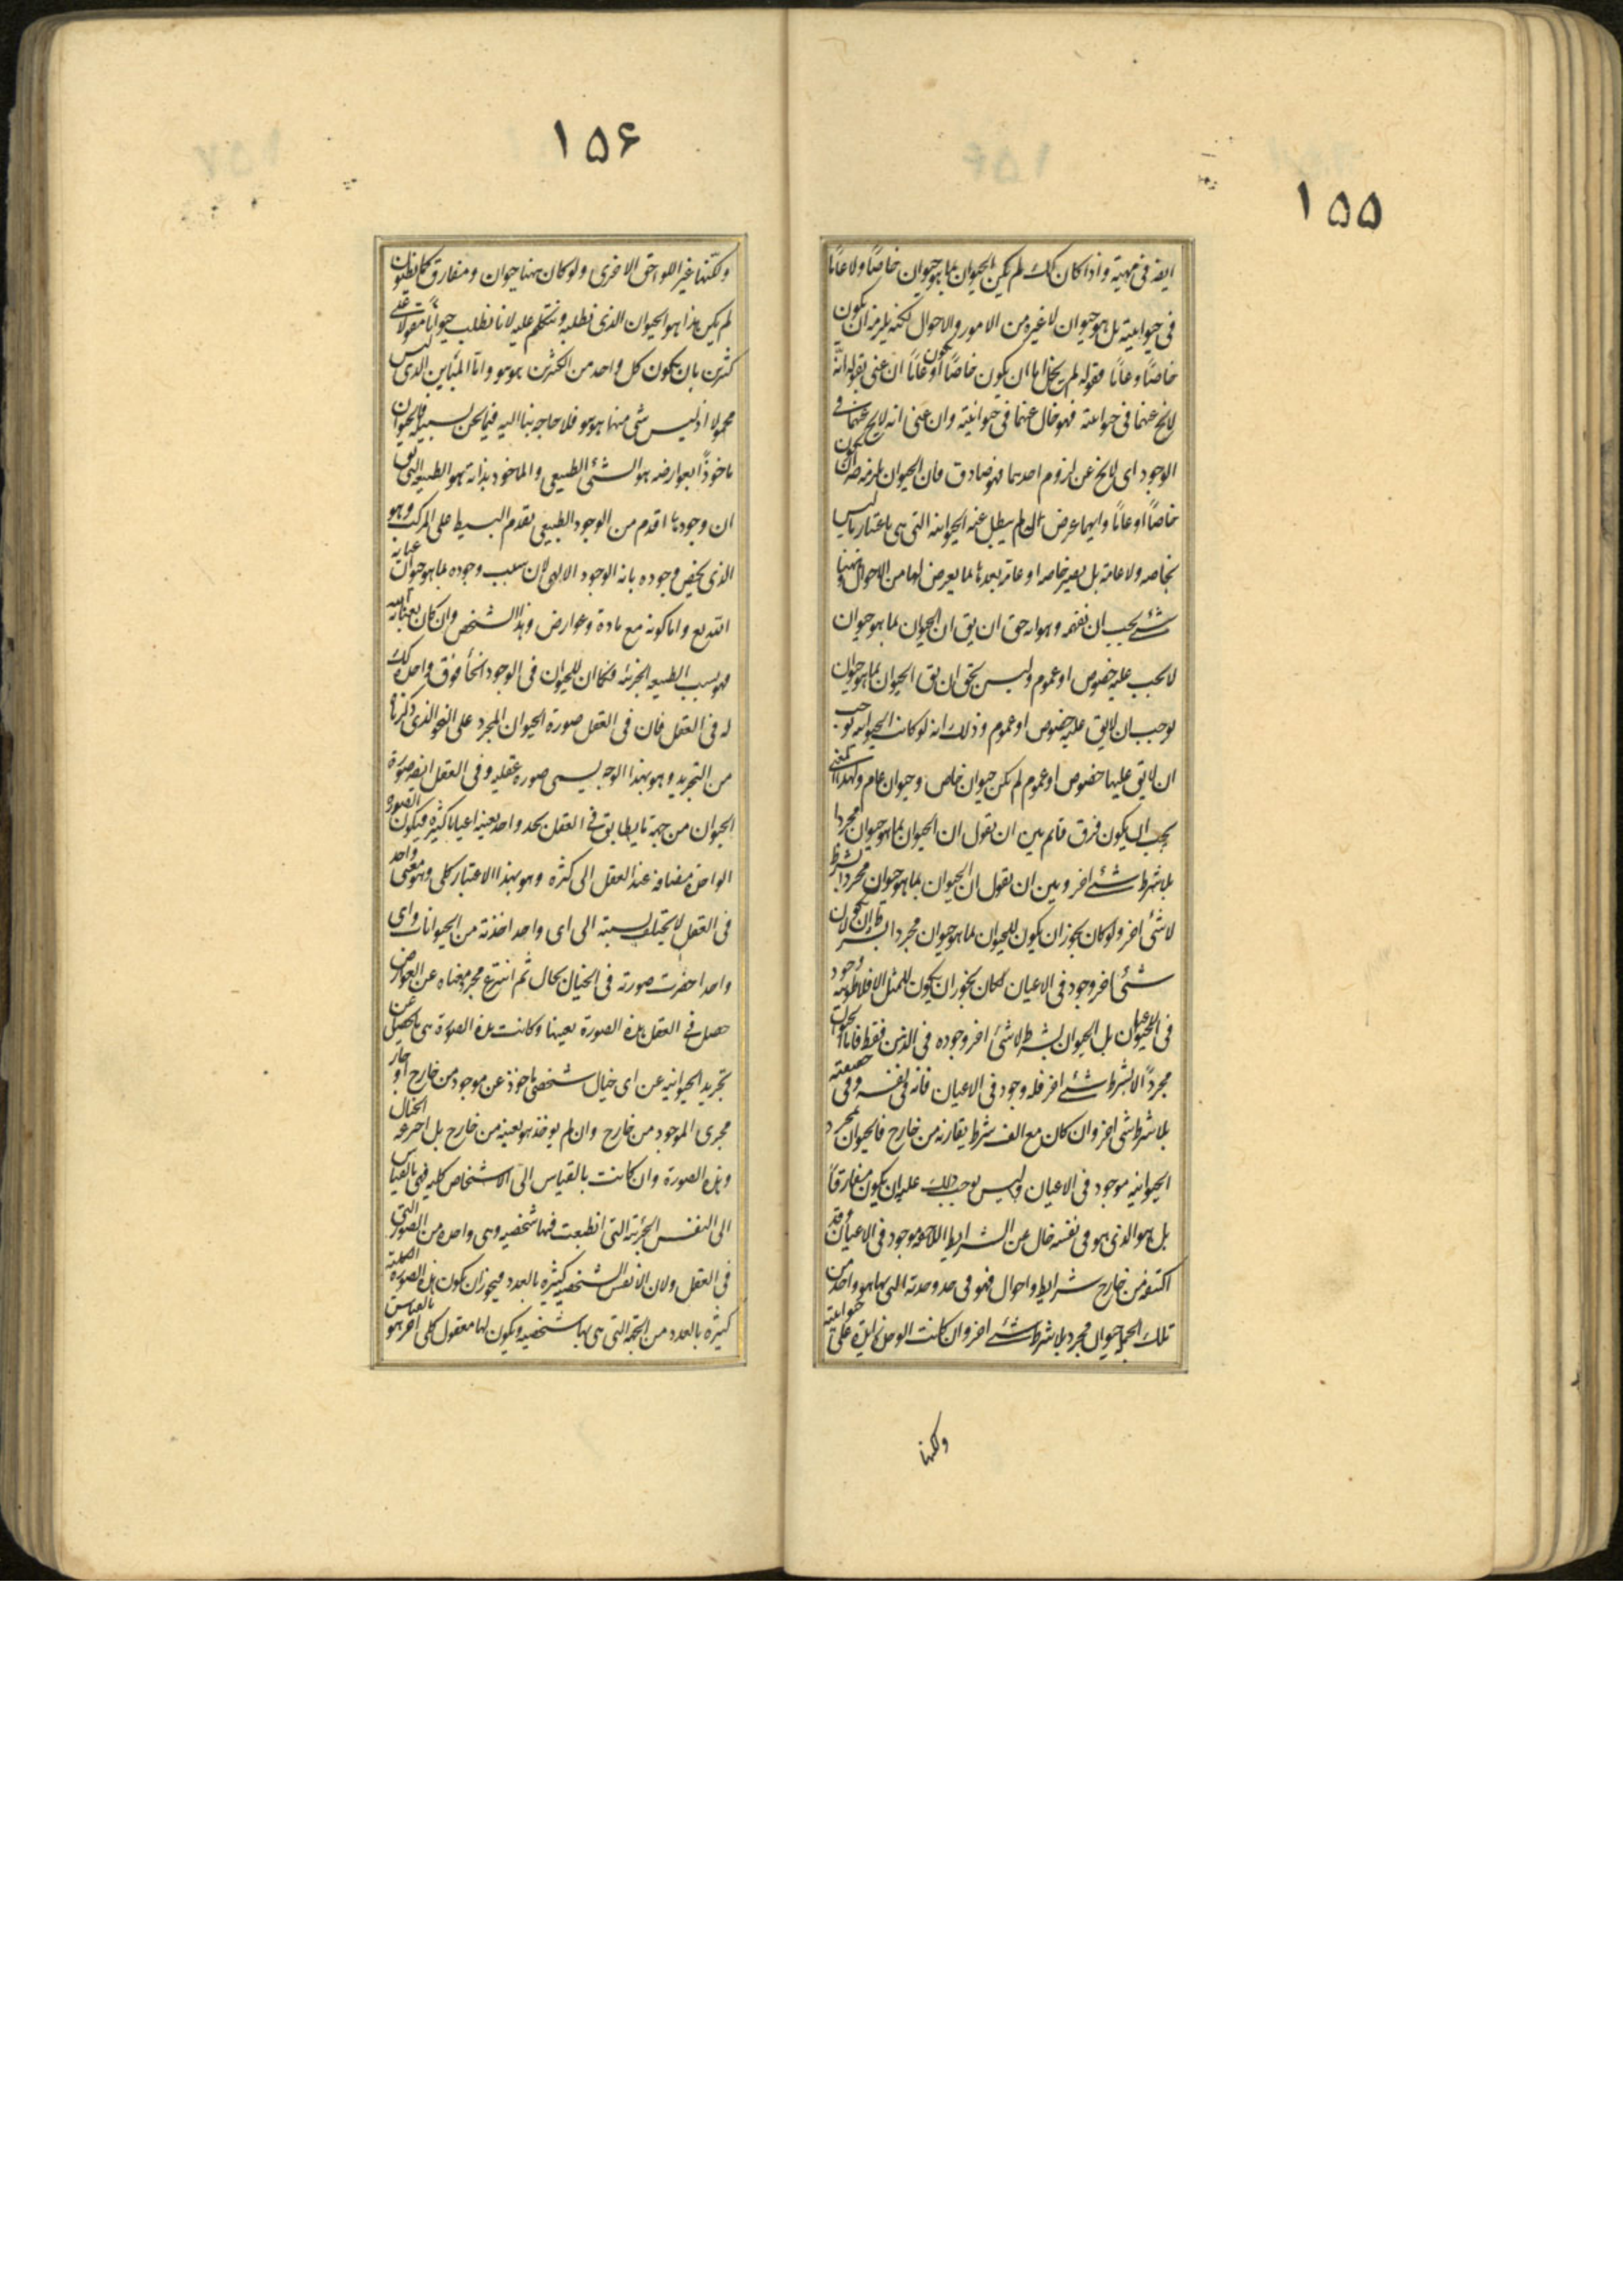 ١٥٥
ايضه فى مهية و اذا كان كك لم يكن الحيوان بما هو حيوان خاصًا ولا عامًا
فى حيوانيته بل هو حيوان لا غيره من الامور والاحوال لكنه يلزمه ان يكون
خاصًا وعامًا فقوله لم يخل اما ان يكون خاصًا او يكون عامًا ان عنى بقوله انه
لا يخ عنهما فى حيوانيته فهو خال عنهما فى حيوانيته وان عنى انه لا يخ عنهما فى
الوجود اى لا يخ عن لزوم احدهما فهو صادق فان الحيوان يلزمه ضرورة ان يكون
خاصًا او عامًا وايهما عرض له لم يبطل عنه الحيوانيه التى هى باعتبار ما ليس
بخاصه ولا عامة بل يصير خاصه او عامة بعدها بما يعرض لها من الاحوال وههنا
شئ يجب ان تفهمه وهو انه حق ان يق ان الحيوان بما هو حيوان
لا يجب عليه خصوص او عموم وليس بحق ان يق الحيوان بما هو حيوان
يوجب ان لا يق عليه خصوص او عموم وذلك انه لو كانت الحيوانيه توجب
ان لا يق عليها خصوص او عموم لم يكن حيوان خاص وحيوان عام ولهذا المعنى
يجب ان يكون فرق قايم بين ان نقول ان الحيوان بما هو حيوان مجردا
بلا شرط شئ اخر وبين ان نقول ان الحيوان بما هو حيوان مجردا بشرط
لا شئ اخر ولو كان يجوز ان يكون للحيوان بما هو حيوان مجردا بشرط ان لا يكون
شئ اخر وجود فى الاعيان لكان يجوز ان يكون للمثل الافلاطونية وجود
فى الاعيان بل الحيوان بشرط لا شئ اخر وجوده فى الذهن فقط فاما الحيوان
مجردًا لا بشرط شئ اخر فله وجود فى الاعيان فانه فى نفسه وفى حقيقته
بلا شرط شى اخر وان كان مع الف شرط يقارنه من خارج فالحيوان بمجرد
الحيوانيه موجود فى الاعيان وليس يوجب ذلك عليه ان يكون مفارقًا
بل هو الذى هو فى نفسه خال عن الشرايط اللاحقه موجود فى الاعيان وقد
اكتنفه من خارج شرايط واحوال فهو فى حد وحدته التى بها هو واحد من
تلك الجملة حيوان مجرد بلا شرط شئ اخر وان كانت الوحدة زايدة على حيوانيته
ولكنها
١٥۶
ولكنها غير اللواحق الاخرى ولو كان ههنا حيوان ومفارق كما يظنون
لم يكن هذا هو الحيوان الذى نطلبه ونتكلم عليه لانا نطلب حيوانًا مقولا على
كثيرين بان يكون كل واحد من الكثيرين هو هو واما المباين الذى ليس
محمولا اذ ليس شى منها هو هو فلا حاجه بنا اليه فيما نحن بسبيله فالحيوان
ماخوذًا بعوارضه هو الشئ الطبيعى والماخوذ بذاته هو الطبيعه التى يق
ان وجودها اقدم من الوجود الطبيعى بقدم البسيط على المركب وهو
الذى يخص وجوده بانه الوجود الالهى لان سبب وجوده بما هو حيوان عناية
الله تع واما كونه مع مادة وعوارض وهذا الشخص وان كان بعناية الله
فهو بسبب الطبيعه الجزئيه فكما ان للحيوان فى الوجود انحآ فوق واحد كك
له فى العقل فان فى العقل صورة الحيوان المجرد على النحو الذى ذكرناه
من التجريد وهو بهذا الوجه يسمى صورة عقليه وفى العقل ايضه صورة
الحيوان من جهة ما يطابق فى العقل بحد واحد بعينه اعيانا كثيرة فيكون الصورة
الواحدة مضافة عند العقل الى كثرة وهو بهذا الاعتبار كلى وهو معنى واحد
فى العقل لا يختلف نسبته الى اى واحد اخذته من الحيوانات واى
واحد احضرت صورته فى الخيال بحال ثم انتزع مجرد معناه عن العوارض
حصل فى العقل هذه الصورة بعينها وكانت هذه الصورة هى ما يحصل عن
تجريد الحيوانيه عن اى خيال شخصى ماخوذ عن موجود من خارج او جار
مجرى الموجود من خارج وان لم يوخذ هو بعينه من خارج بل اخترعه الخيال
وهذه الصورة وان كانت بالقياس الى الاشخاص كليه فهى بالقياس
الى النفس الجزئية التى انطبعت فيها شخصيه وهى واحدة من الصور التى
فى العقل ولان الانفس الشخصيه كثيرة بالعدد فيجوز ان يكون هذه الصورة الكلية
كثيرة بالعدد من الجهة التى هى بها شخصيه ويكون لها معقول كلى اخر هو بالقياس